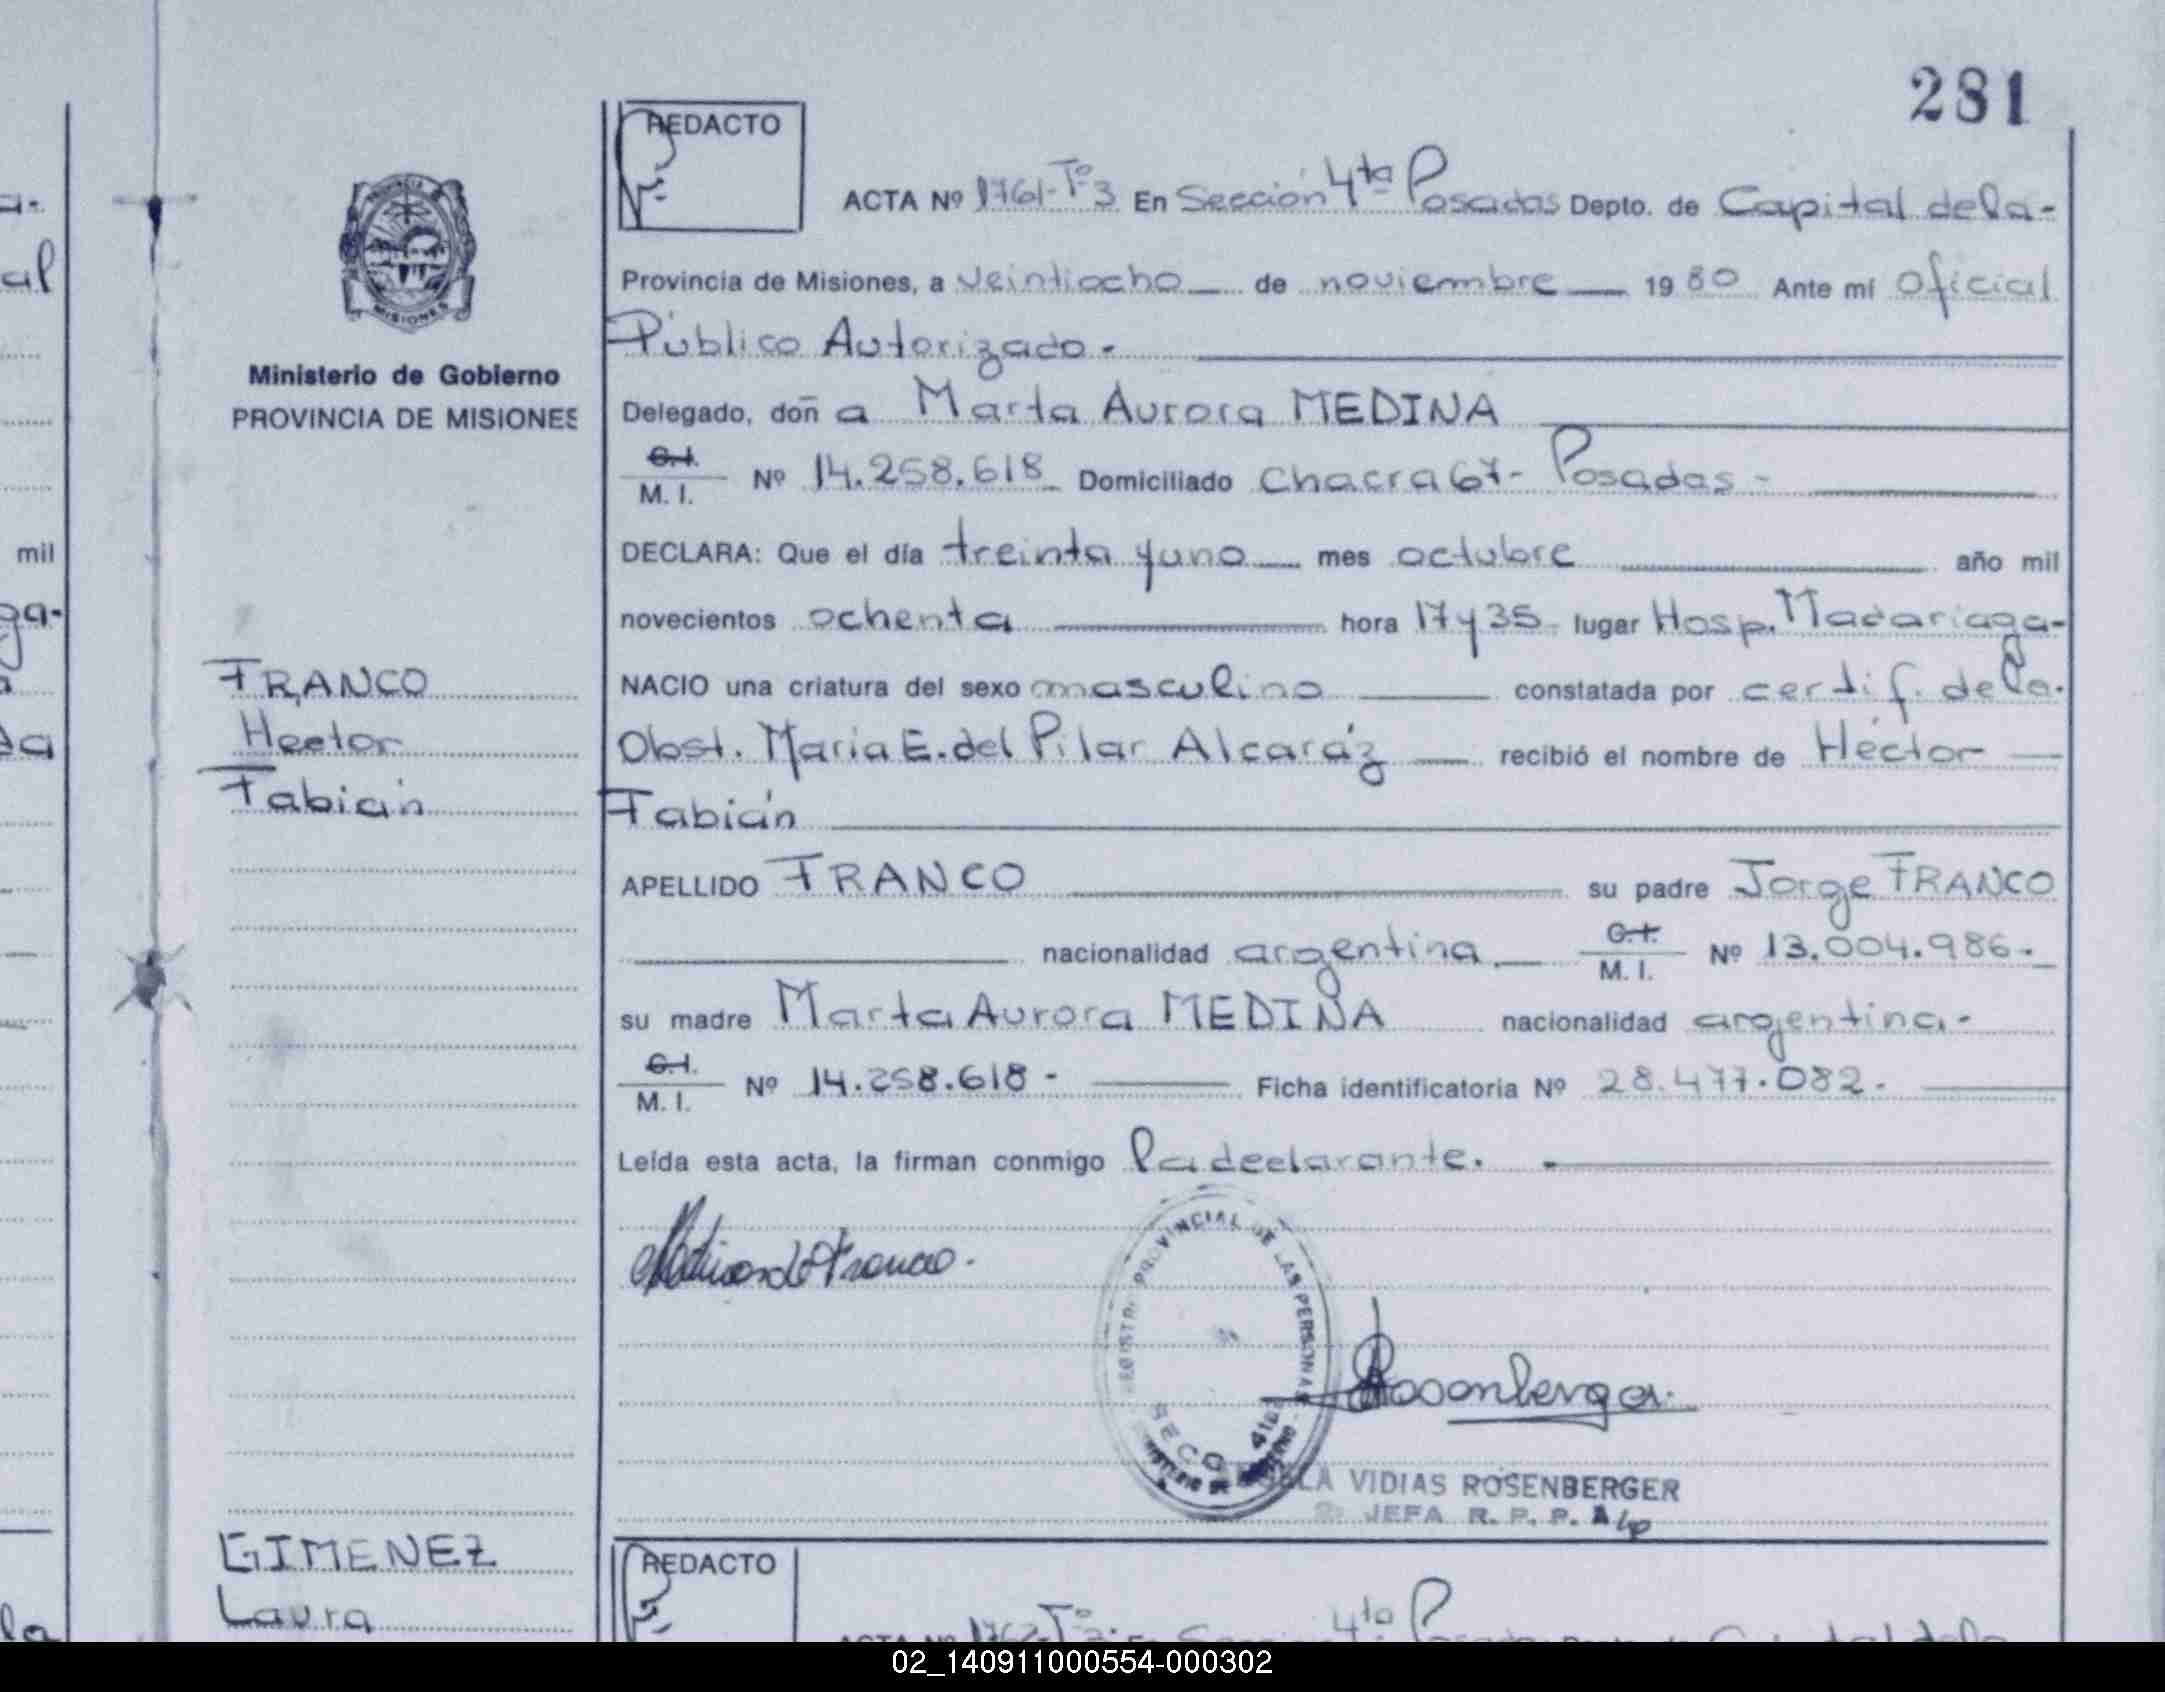 281
REDACTO
ACTA Nº 1761-Tº3 En Sección 4ta Posadas Depto. de Capital de la-
Provincia de Misiones, a veintiocho de noviembre 1980 Ante mí Oficial
Público Autorizado-
Delegado, doñ a Marta Aurora MEDINA
C.I.
M. I. Nº 14.258.618 Domiciliado Chacra 67- Posadas-
DECLARA: Que el día treinta y uno mes octubre año mil
novecientos ochenta hora 17 y 35 lugar Hosp. Madariaga-
NACIO una criatura del sexo masculino constatada por certif. de la.
Obst. Maria E. del Pilar Alcaráz recibió el nombre de Héctor
Fabián
APELLIDO FRANCO su padre Jorge FRANCO
nacionalidad argentina C.I.
M. I. Nº 13.004.986-
su madre Marta Aurora MEDINA nacionalidad argentina-
C.I.
M. I. Nº 14.258.618- Ficha identificatoria Nº 28.477.082-
Leída esta acta, la firman conmigo la declarante.
Medina de Franco.
PROVINCIAL DE LAS PERSONAS
SECC 4ta
Rosenberger
VIDIAS ROSENBERGER
JEFA R. P. P.
PROVINCIA DE
MISIONES
Ministerio de Gobierno
PROVINCIA DE MISIONES
FRANCO
Hector
Fabián
GIMENEZ
Laura
REDACTO
ACTA Nº 1762-Tº3 En Sección 4ta Posadas
al
mil
la
02_140911000554-000302